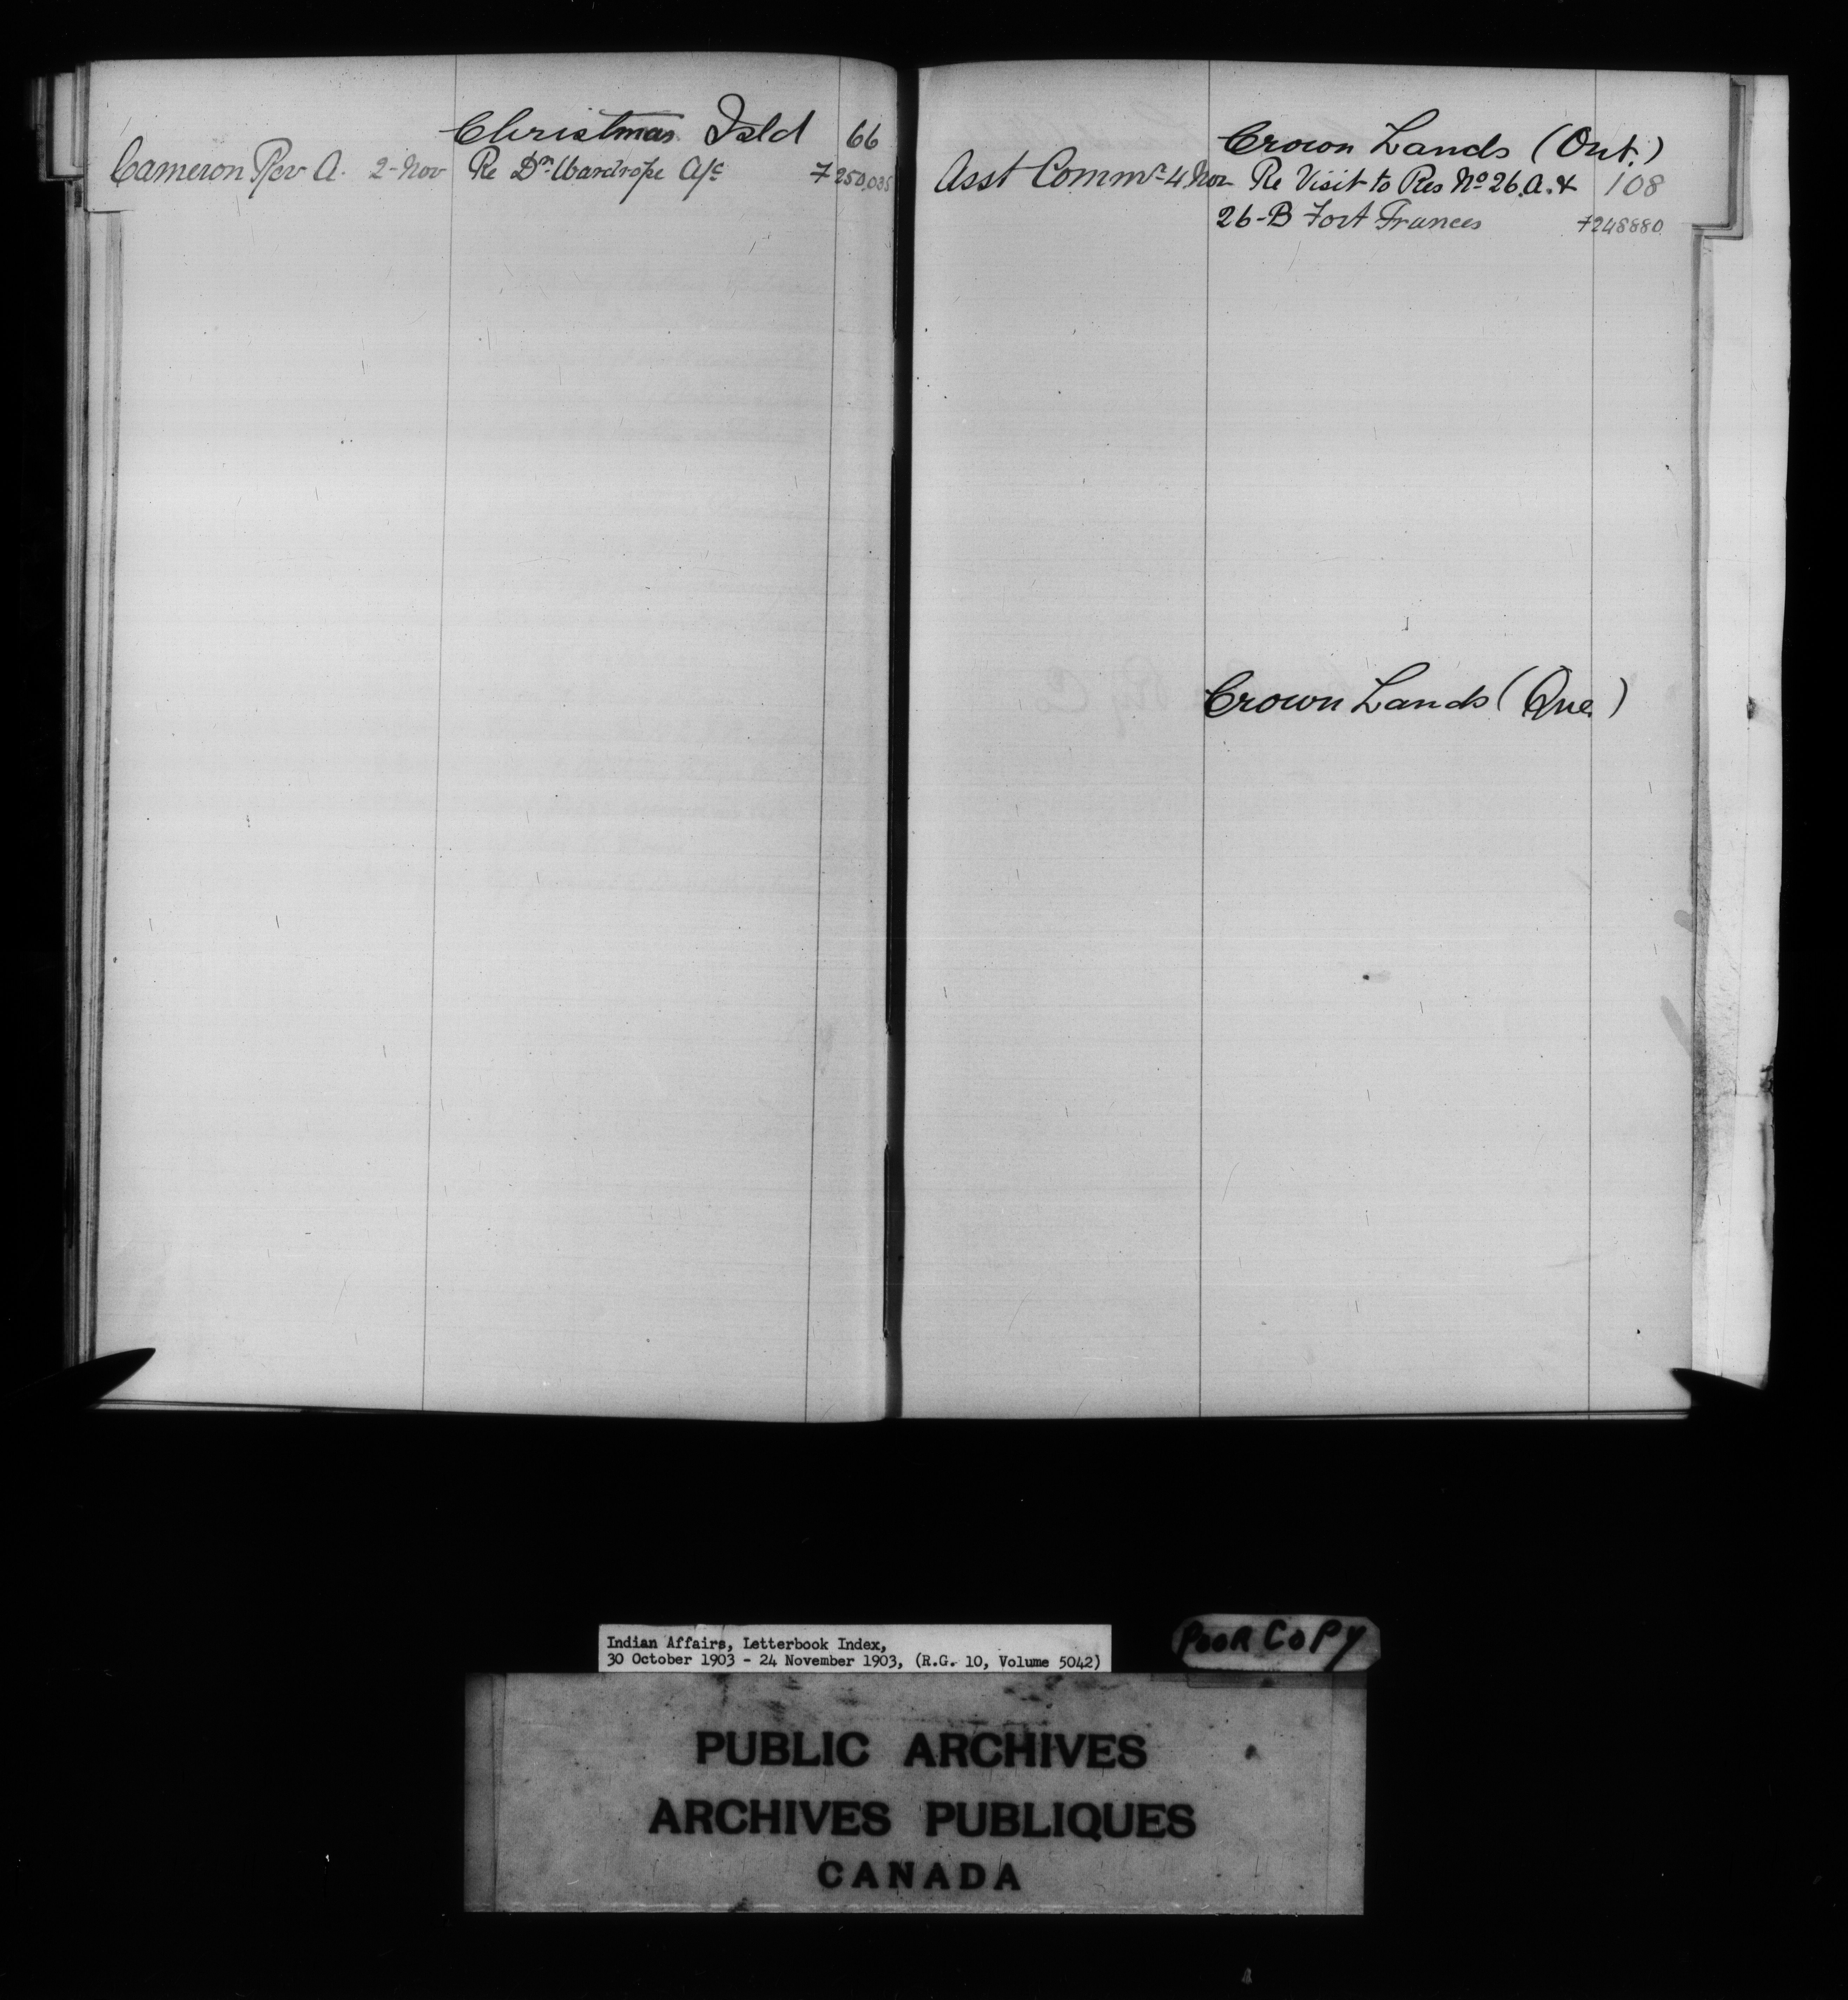 Christmas Isld 66
Cameron Rev A. 2-Nov Re Dr Wardrope A/c 7 250,035
Crown Lands (Ont.)
Asst Commr 4 Nov Re Visit to Res No 26.A. & 108
26-B Fort Frances 7248880
Crown Lands (Que)
Indian Affairs, Letterbook Index,
30 October 1903 - 24 November 1903, (R.G. 10, Volume 5042)
POOR COPY
PUBLIC ARCHIVES
ARCHIVES PUBLIQUES
CANADA